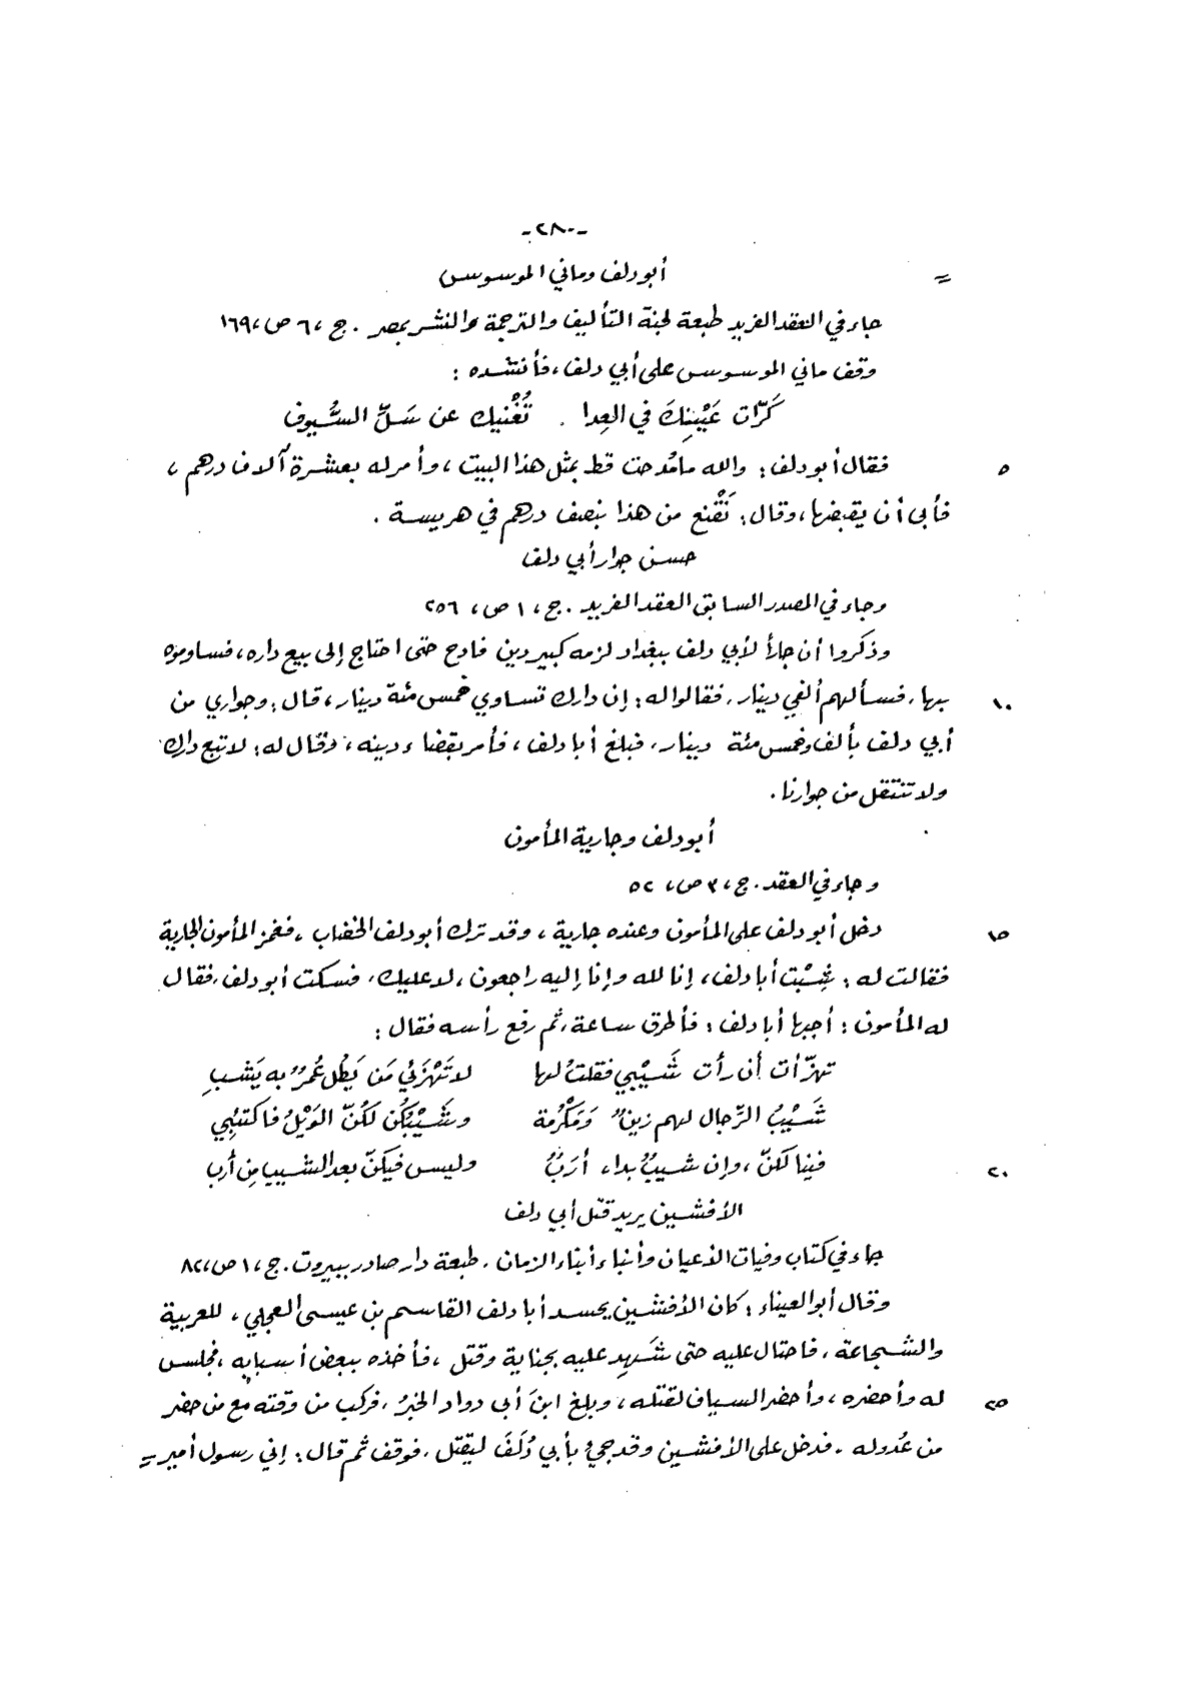 -٢٨٠-
= أبو دلف وماني الموسوس
جاء في العقد الفريد طبعة لجنة التأليف والترجمة والنشر بمصر . ج ، ٦ ص ، ١٦٩
وقف ماني الموسوس على أبي دلف ، فأنشده :
كَرّات عَيْنِكَ في العِدا . تُغْنيك عن سَلِّ السُّيوف
٥ فقال أبو دلف : والله ما مُدحت قط بمثل هذا البيت ، وأمر له بعشرة آلاف درهم ،
فأبى أن يقبضها ، وقال : نَقْنع من هذا بنصف درهم في هريسة .
حسن جوار أبي دلف
وجاء في المصدر السابق العقد الفريد . ج ، ١ ص ، ٢٥٦
وذكروا أن جاراً لأبي دلف ببغداد لزمه كبير دين فادح حتى احتاج إلى بيع داره ، فساوموه
١٠ بها ، فسألهم ألفي دينار ، فقالوا له : إن دارك تساوي خمس مئة دينار ، قال : وجواري من
أبي دلف بألف وخمس مئة دينار ، فبلغ أبا دلف ، فأمر بقضاء دينه ، وقال له : لا تبع دارك
ولا تنتقل من جوارنا .
أبو دلف وجارية المأمون
وجاء في العقد . ج ، ٣ ص ، ٥٢
١٥ دخل أبو دلف على المأمون وعنده جارية ، وقد ترك أبو دلف الخضاب ، فغمز المأمون الجارية
فقالت له : شِبْت أبا دلف ، إنا لله وإنا إليه راجعون ، لا عليك ، فسكت أبو دلف ، فقال
له المأمون : أجبها أبا دلف : فأطرق ساعة ، ثم رفع رأسه فقال :
تهزّأت أن رأت شَيْبي فقلتُ لها لا تَهْزَئي مَن يَطُل عُمرٌ به يَشبِ
شَيْبُ الرّجال لهم زينٌ وَمَكْرُمة وشَيْبُكُن لكُنّ الوَيْلُ فاكتئِبي
٢٠ فينا لكنّ ، وإن شيبٌ بداء أرَبٌ وليس فيكنّ بعد الشيب مِن أرب
الأفشين يريد قتل أبي دلف
جاء في كتاب وفيات الأعيان وأنباء أبناء الزمان . طبعة دار صادر ببيروت . ج ، ١ ص ، ٨٢
وقال أبو العيناء : كان الأفشين يحسد أبا دلف القاسم بن عيسى العجلي ، للعربية
والشجاعة ، فاحتال عليه حتى شَهِد عليه بجناية وقتل ، فأخذه ببعض أسبابه ، فجلس
٢٥ له وأحضره ، وأحضر السياف لقتله ، وبلغ ابنَ أبي دواد الخبرُ ، فركب من وقته مع من حضر
من عُدوله . فدخل على الأفشين وقد جيءَ بأبي دُلَفَ ليقتل . فوقف ثم قال : إني رسول أمير =